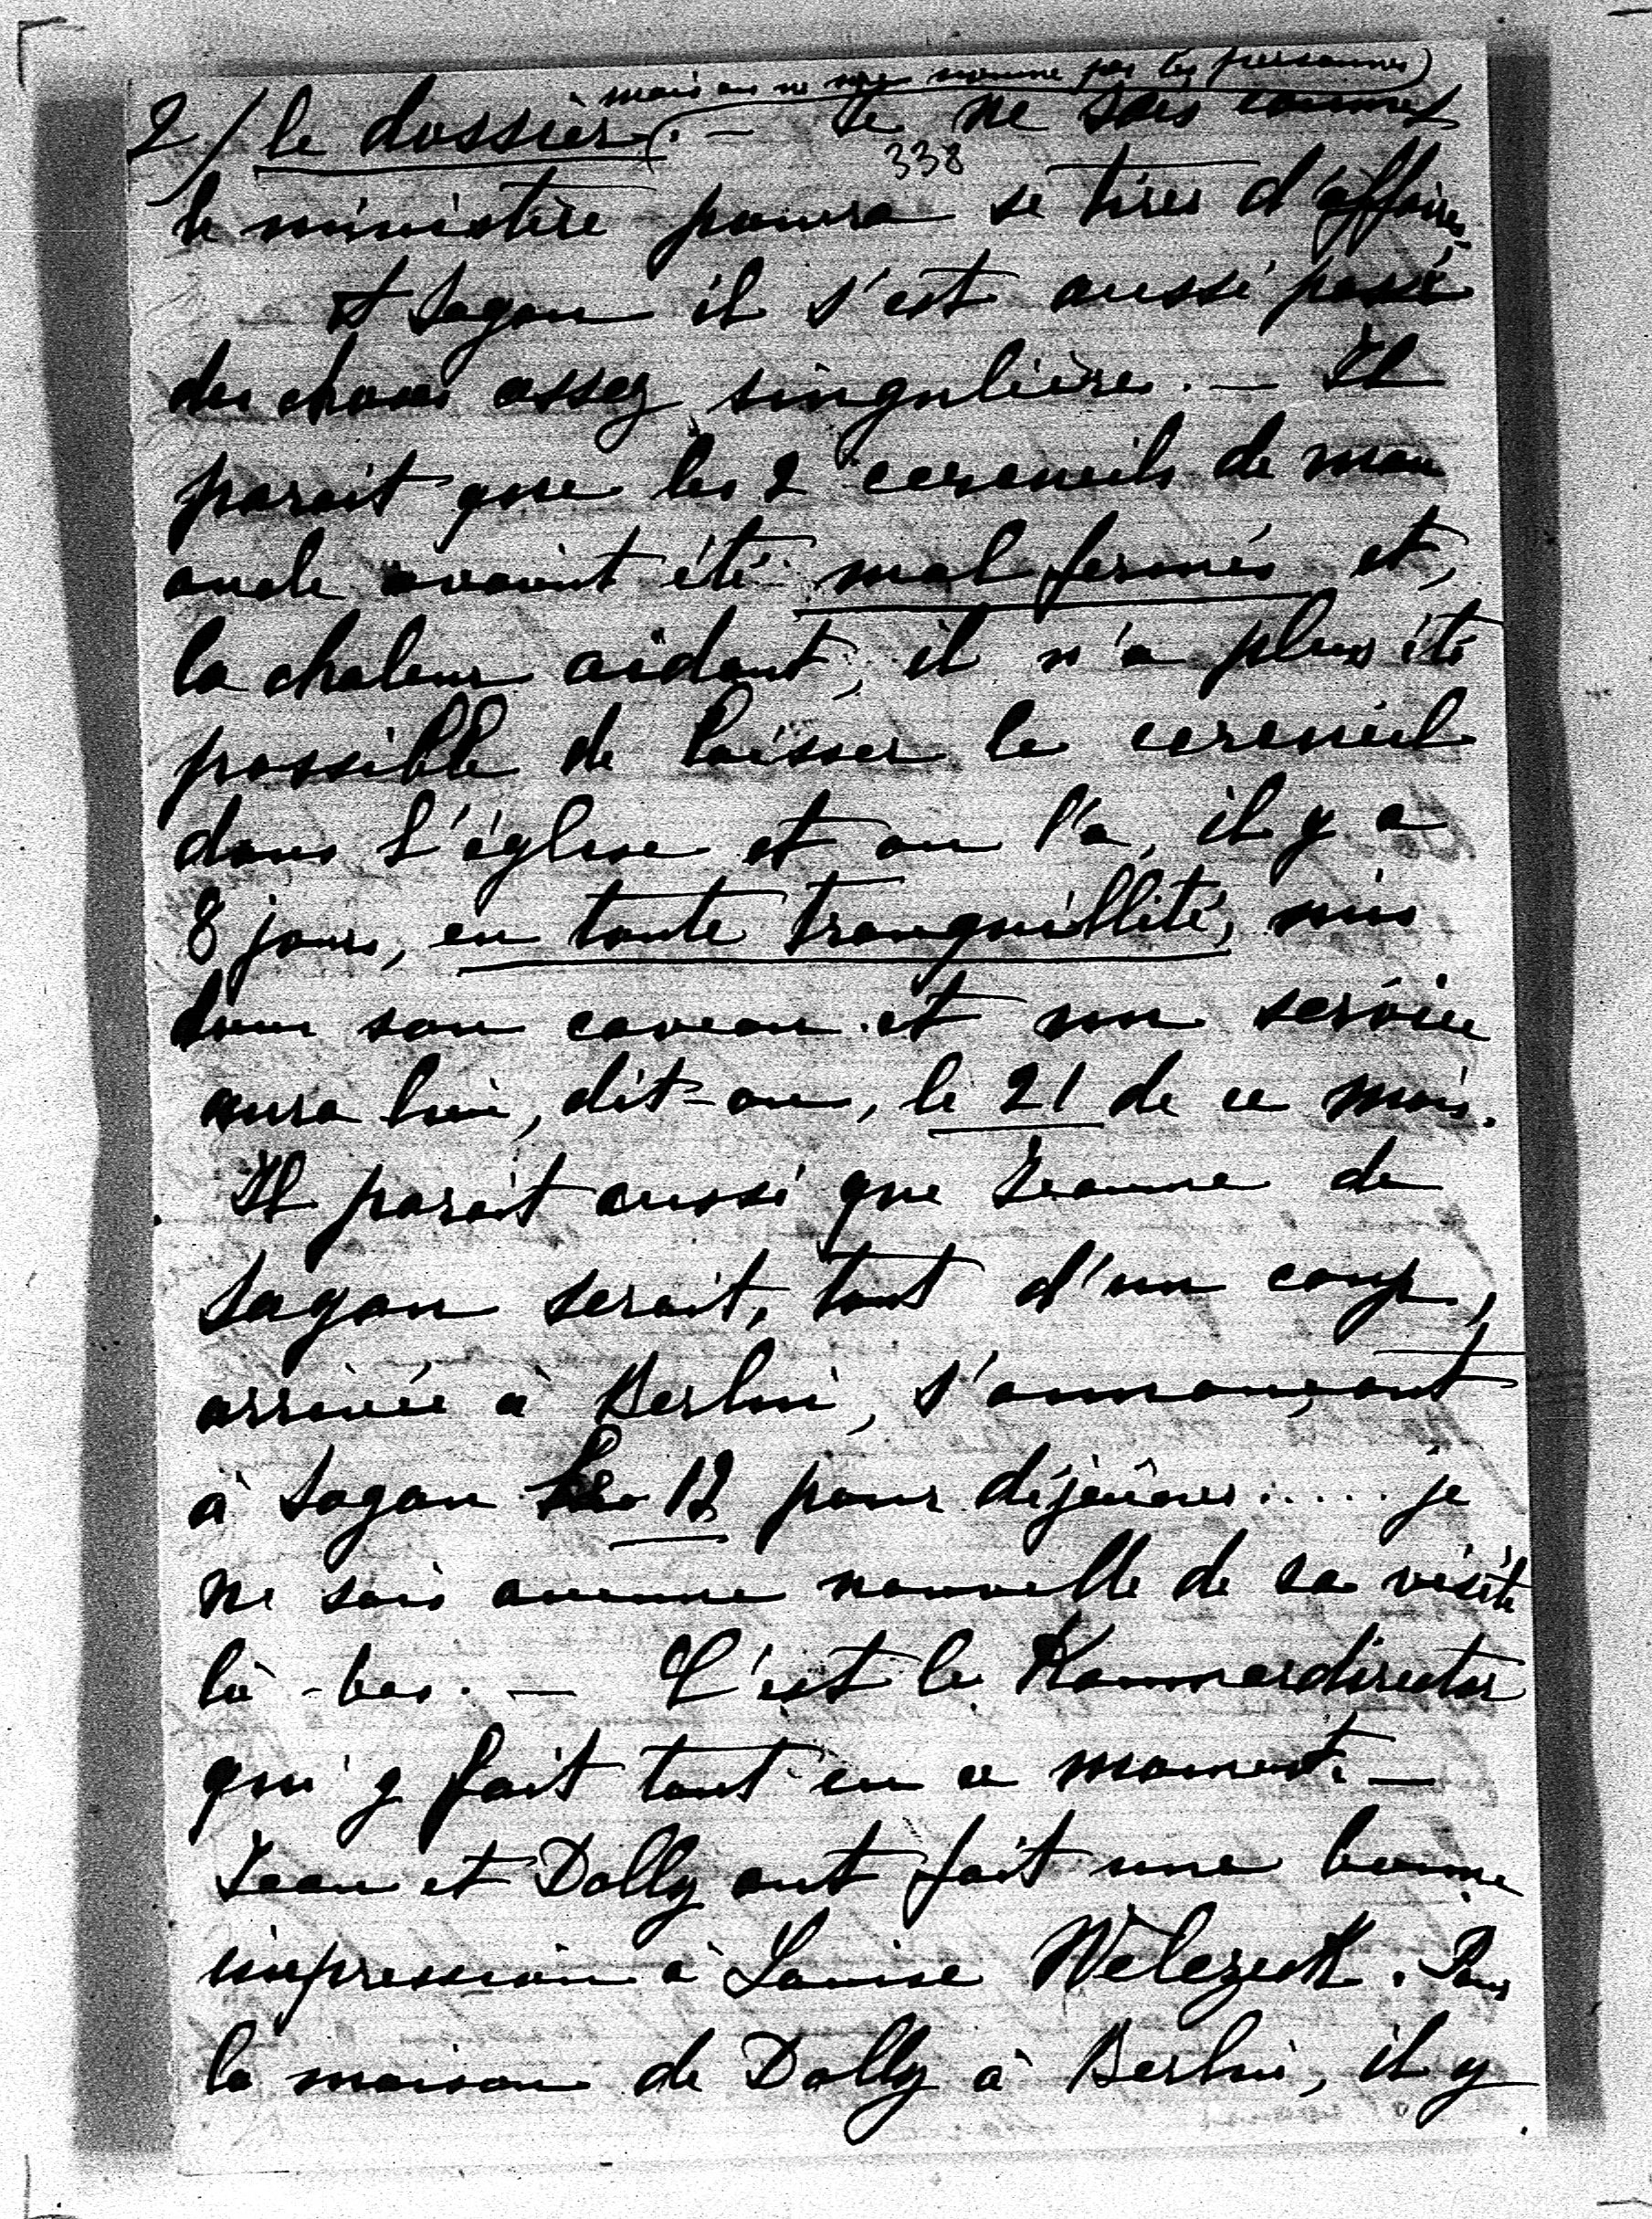 mais on ne me nomme pas les personnes)
2/ le dossier (. — Je ne sais comment
338
le ministère pourra se tirer d'affaire.
A Sagan il s'est aussi passé
des choses assez singulières. — Il
parait que les 2 cercueils de mon
oncle avaient été mal fermés et,
la chaleur aidant, il n'a plus été
possible de laisser le cercueil
dans l'église et on l'a, il y a
8 jours, en toute tranquillité, mis
dans son caveau et un service
aura lieu, dit-on, le 21 de ce mois.
Il parait aussi que Jeanne de
Sagan serait, tout d'un coup,
arrivée à Berlin, s'annonçant
à Sagan le 12 pour déjeûner..... je
ne sais aucune nouvelle de sa visite
là-bas. — C'est le Kammerdirector
qui y fait tout en ce moment. —
Jean et Dolly ont fait une bonne
impression à Louise Welczeck. Pour
la maison de Dolly à Berlin, il y